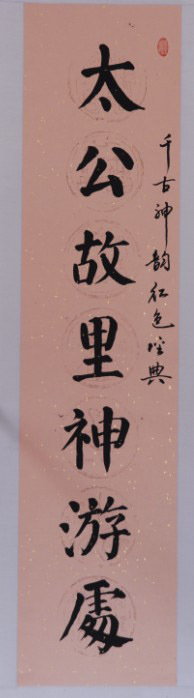 千古神韵红色圣典
太公故里神游處